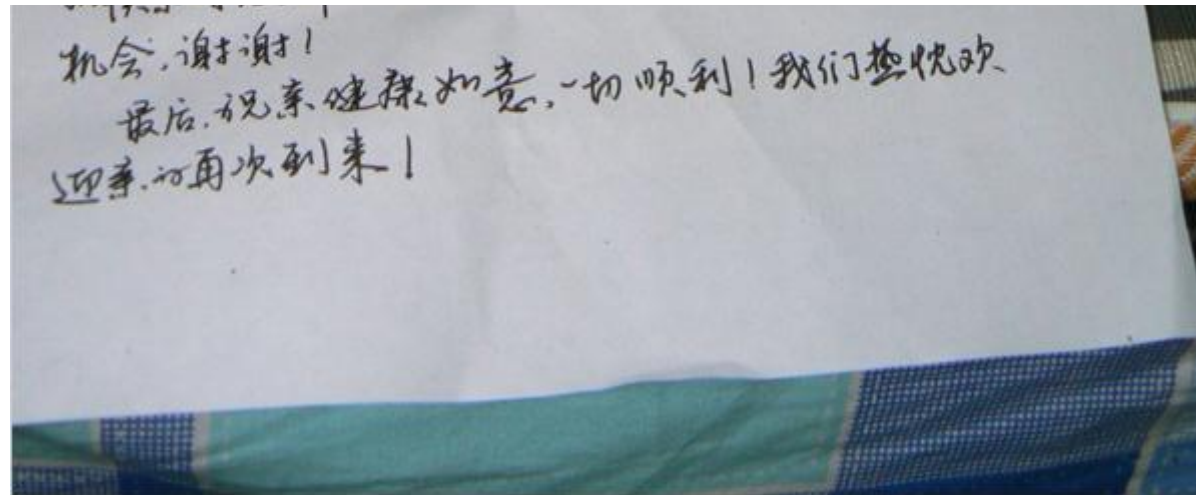 机会,谢谢!
最后,祝亲健康如意,一切顺利!我们热忱欢
迎亲的再次到来!